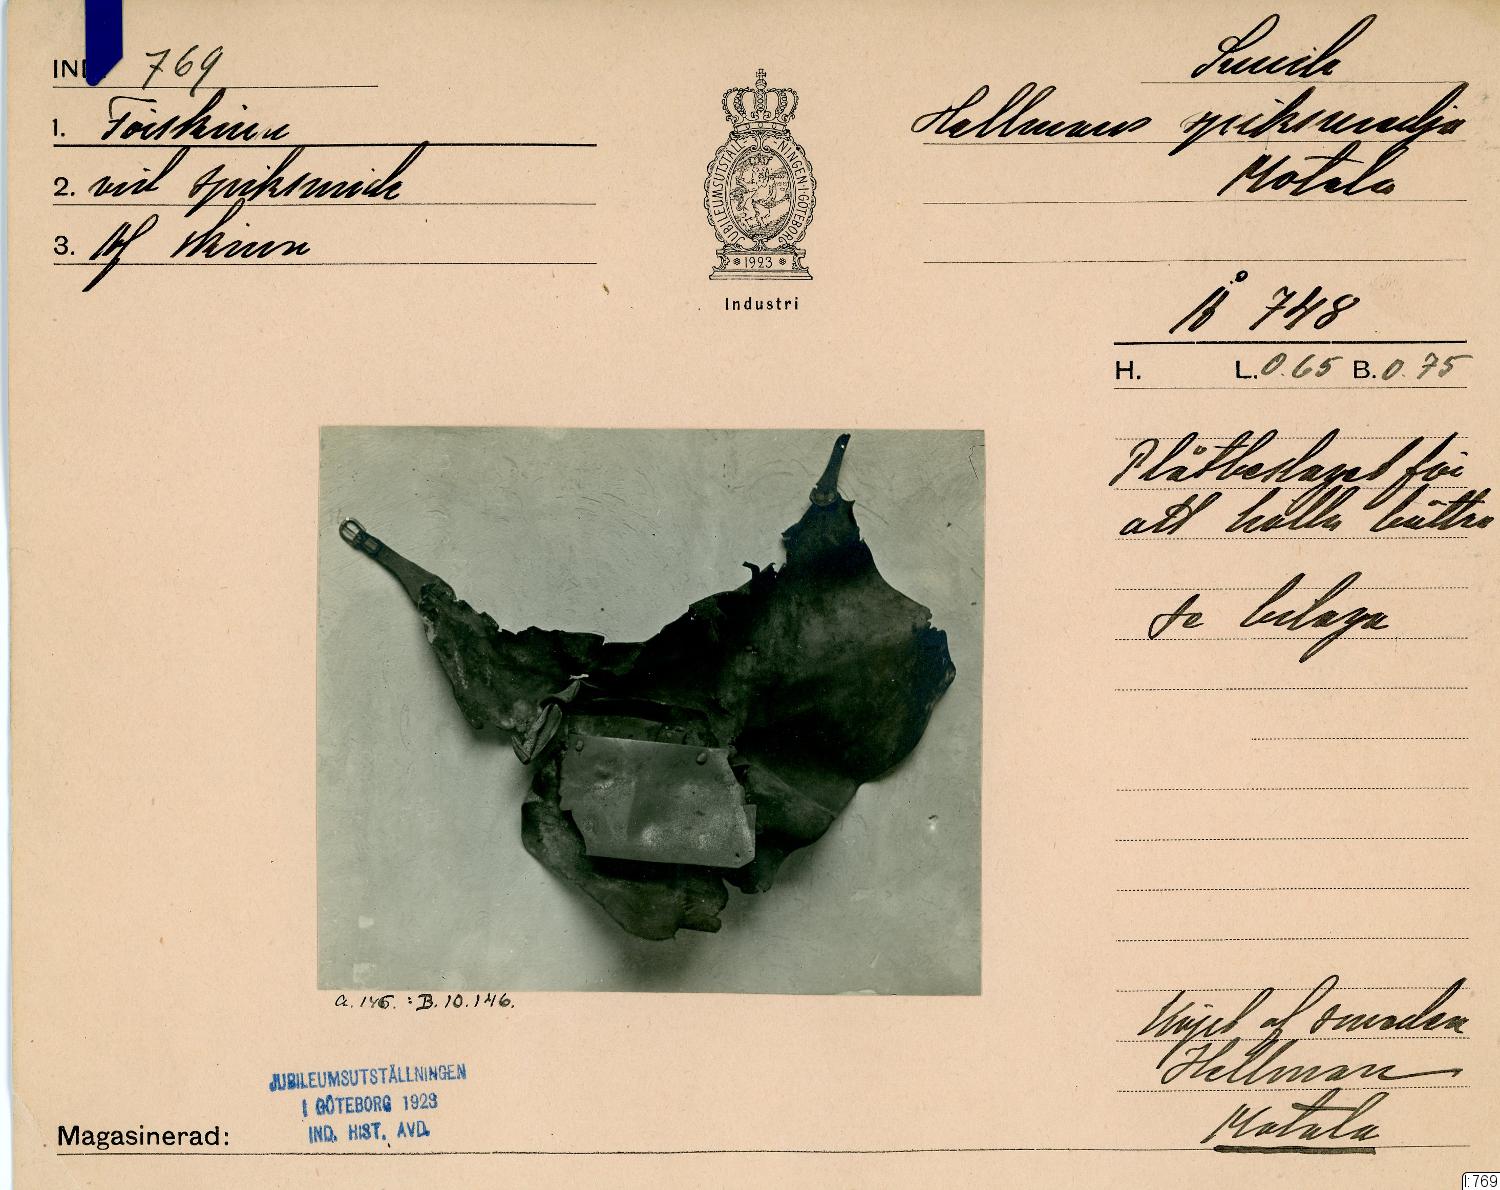 IND. 769
1. Förskinn
2. vid spiksmide
3. Af skinn
JUBILEUMSUTSTÄLLNINGEN I GÖTEBORG
1923
Industri
Smide
Hellmans spiksmedja
Motala
Å 748
H. L. 0.65 B. 0.75
Plåtbeslaget för
att hålla bättre
se bilaga
a. 146. : B. 10. 146.
JUBILEUMSUTSTÄLLNINGEN
I GÖTEBORG 1923
IND. HIST. AVD.
Magasinerad:
af smeden
Hellman
Motala
I:769